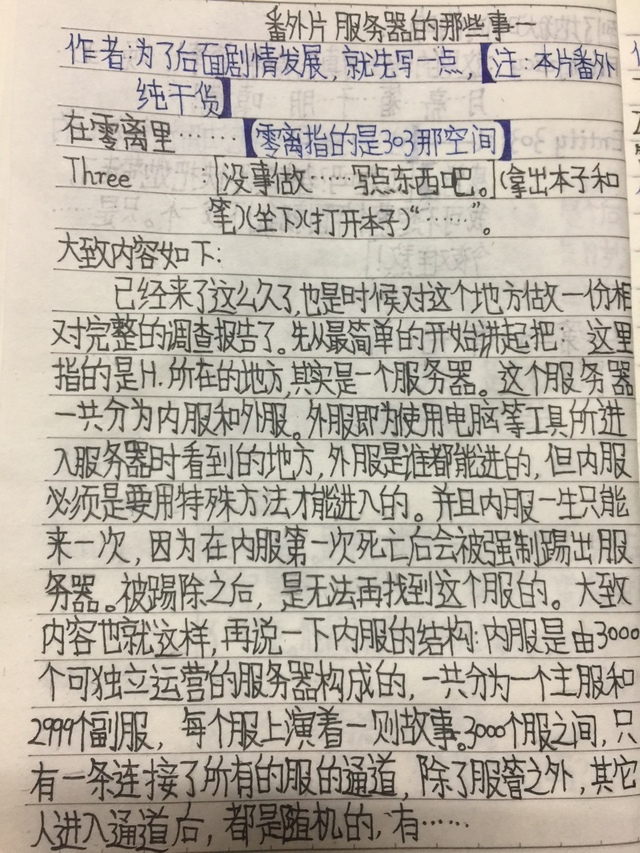 番外片 服务器的那些事
作者:为了后面剧情发展,就先写一点,【注:本片番外
纯干货】
在零离里……【零离指的是303那空间】
Three :[没事做……写点东西吧。](拿出本子和
笔)(坐下)(打开本子)“……”。
大致内容如下:
已经来了这么久了,也是时候对这个地方做一份相
对完整的调查报告了。先从最简单的开始讲起把:这里
指的是H.所在的地方,其实是一个服务器。这个服务器
一共分为内服和外服。外服即为使用电脑等工具所进
入服务器时看到的地方,外服是谁都能进的,但内服
必须是要用特殊方法才能进入的。并且内服一生只能
来一次,因为在内服第一次死亡后会被强制踢出服
务器。被踢除之后,是无法再找到这个服的。大致
内容也就这样,再说一下内服的结构:内服是由3000
个可独立运营的服务器构成的,一共分为一个主服和
2999个副服,每个服上演着一则故事。3000个服之间,只
有一条连接了所有的服的通道,除了服管之外,其它
人进入通道后,都是随机的,有……